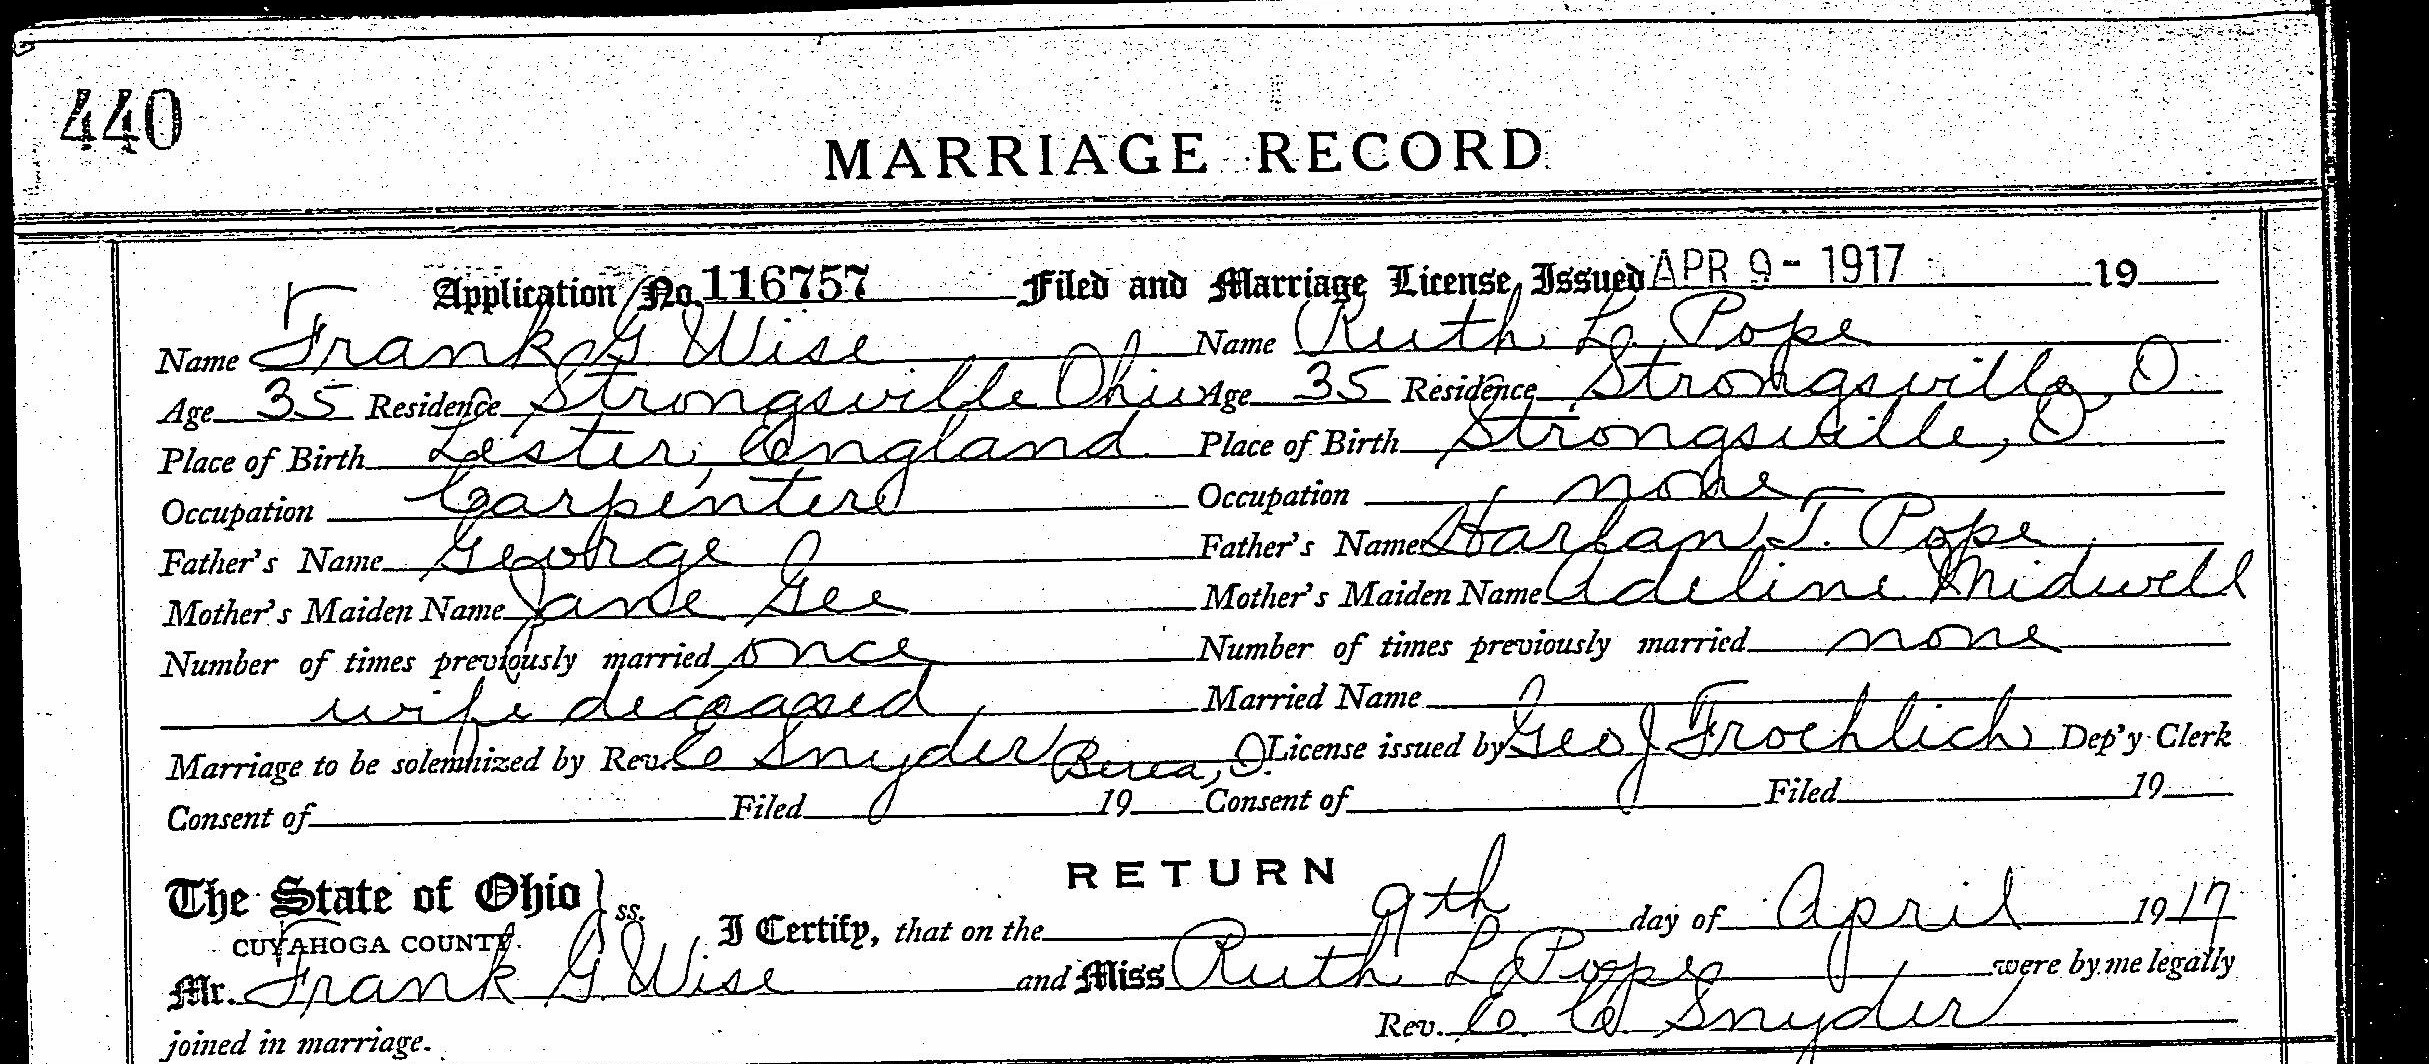 440
MARRIAGE RECORD
Application No. 116757 Filed and Marriage License Issued APR 9 - 1917 19
Name Frank G Wise Name Ruth L Pope
Age 35 Residence Strongsville Ohio Age 35 Residence Strongsville, O
Place of Birth Lester, England Place of Birth Strongsville, O.
Occupation Carpenter Occupation none
Father's Name George Father's Name Harlan T. Pope
Mother's Maiden Name Jane Gee Mother's Maiden Name Adeline Midwell
Number of times previously married once Number of times previously married none
wife deceased Married Name
Marriage to be solemnized by Rev. C Snyder Berea, O. License issued by Geo J Froehlich Dep'y Clerk
Consent of Filed 19 Consent of Filed 19
RETURN
The State of Ohio } ss.
CUYAHOGA COUNTY. I Certify, that on the 9th day of April 1917
Mr. Frank G. Wise and Miss Ruth L Pope were by me legally
joined in marriage. Rev. C C Snyder